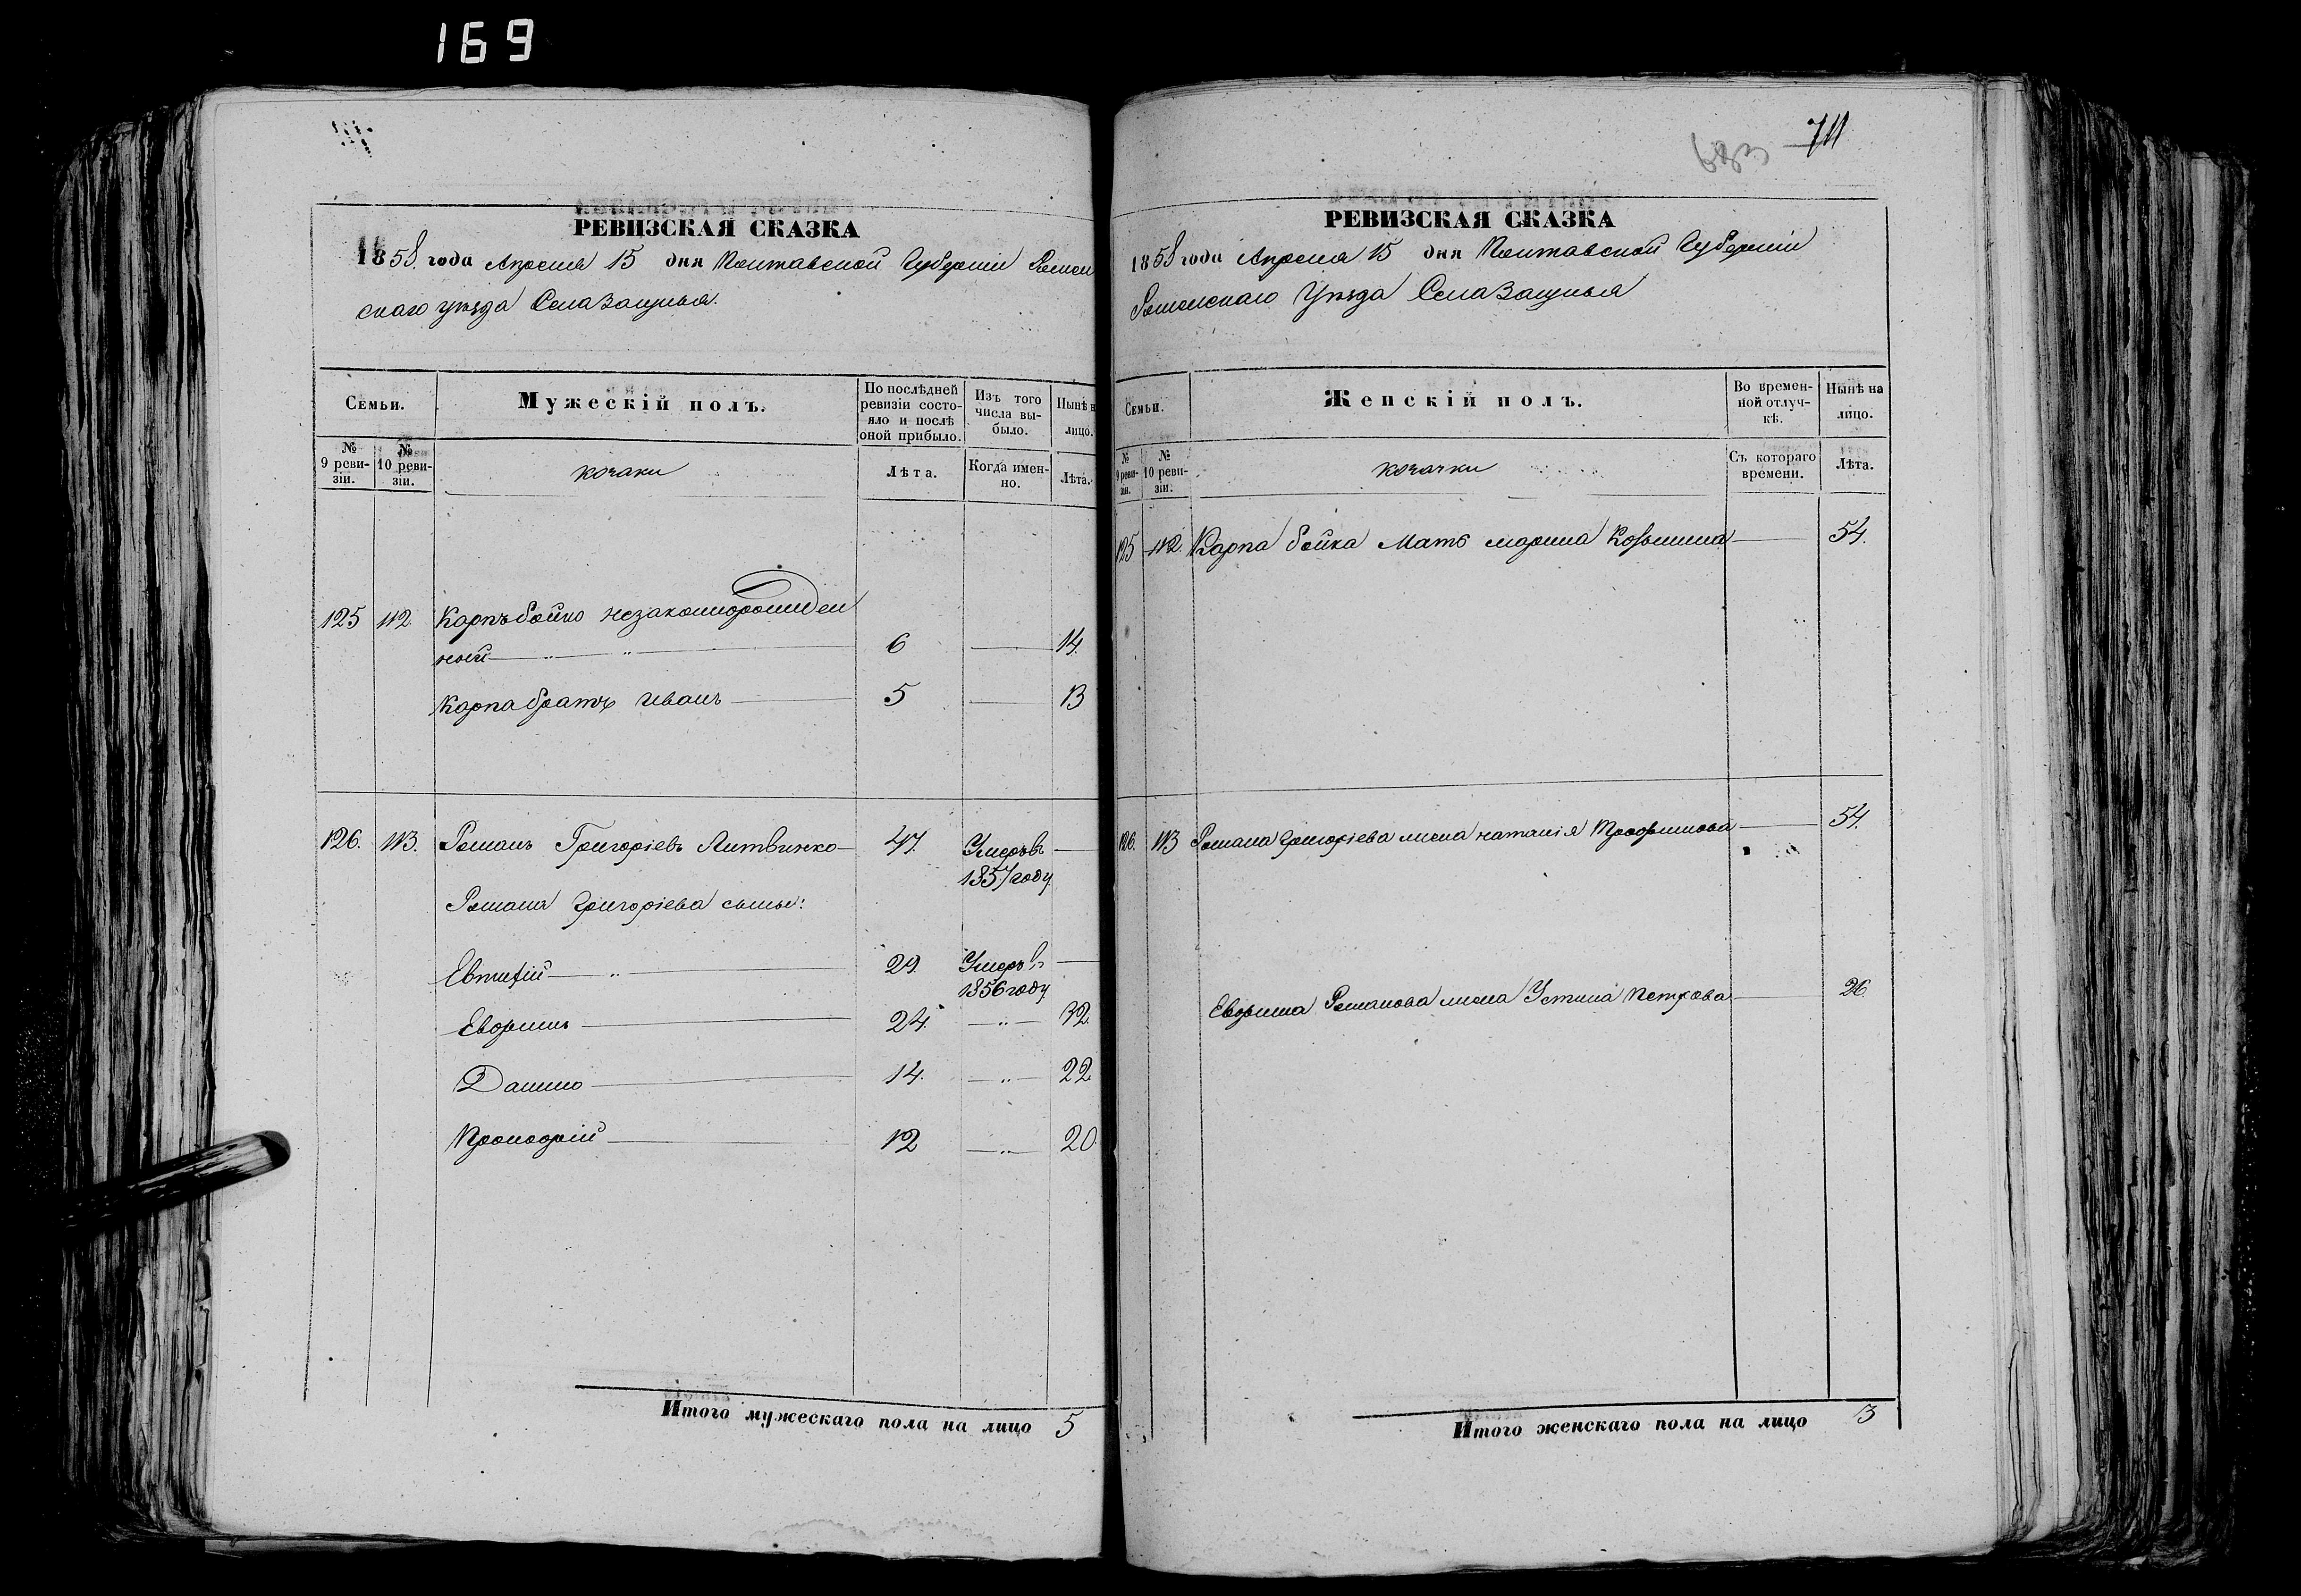 169
РЕВИЗСКАЯ СКАЗКА
1858 года Апреля 15 дня Полтавской Губерніи Ромен
скаго уѣзда Села Защитья.
Семьи.
Мужескій полъ.
По послѣдней ревизіи состояло и послѣ оной прибыло.
Изъ того числа выбыло.
Нынѣ н
лицо.
№ 9 ревизіи.
№ 10 ревизіи.
козаки
Лѣта.
Когда именно.
Лѣта.
125 112. Карпъ бойко незаконорожден
ный 6 14.
Карпа братъ Иванъ 5 13
126. 113. Романъ Григоріевъ Литвинко 47. Умеръ въ
1857 году
Романа Григоріева сыны:
Евтифій 29. Умеръ въ
1856 году
Евфимъ 24. 32.
Данило 14. 22
Прокофій 12 20.
Итого мужескаго пола на лицо 5
683 711
РЕВИЗСКАЯ СКАЗКА
1858 года Апреля 15 дня Полтавской Губерніи
Роменскаго Уѣзда Села
Семьи.
Женскій полъ.
Во временной отлучкѣ.
Нынѣ на лицо.
№ 9 ревизіи.
№ 10 ревизіи.
козачки
Съ котораго времени.
Лѣта.
125 112. Карпа бойка Мать марина 54.
126. 113 Романа Григоріева жена наталія Трофимова 54.
Евфима Романова жена Устина Петрова 26.
Итого женскаго пола на лицо 3